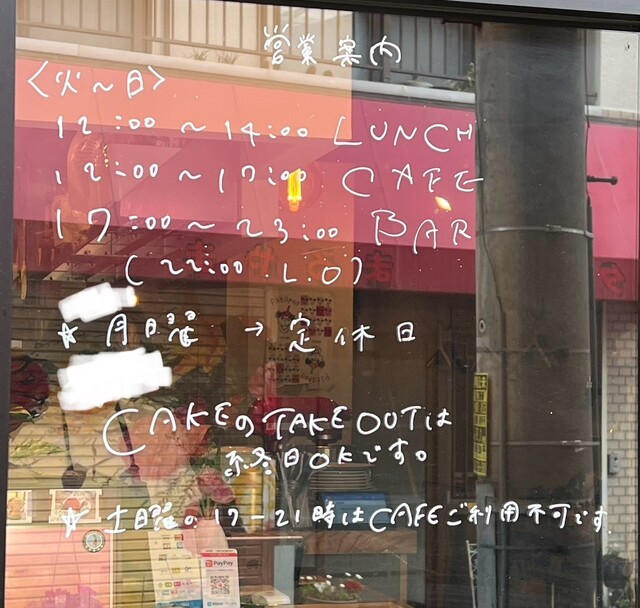 営業案内
〈火〜日〉
12:00 〜 14:00 LUNCH
12:00 〜 17:00 CAFE
17:00 〜 23:00 BAR
(22:00 L.O)
★ 月曜 → 定休日
CAKEのTAKE OUTは
終日OKです。
★ 土曜の17-21時はCAFEご利用不可です
PayPay